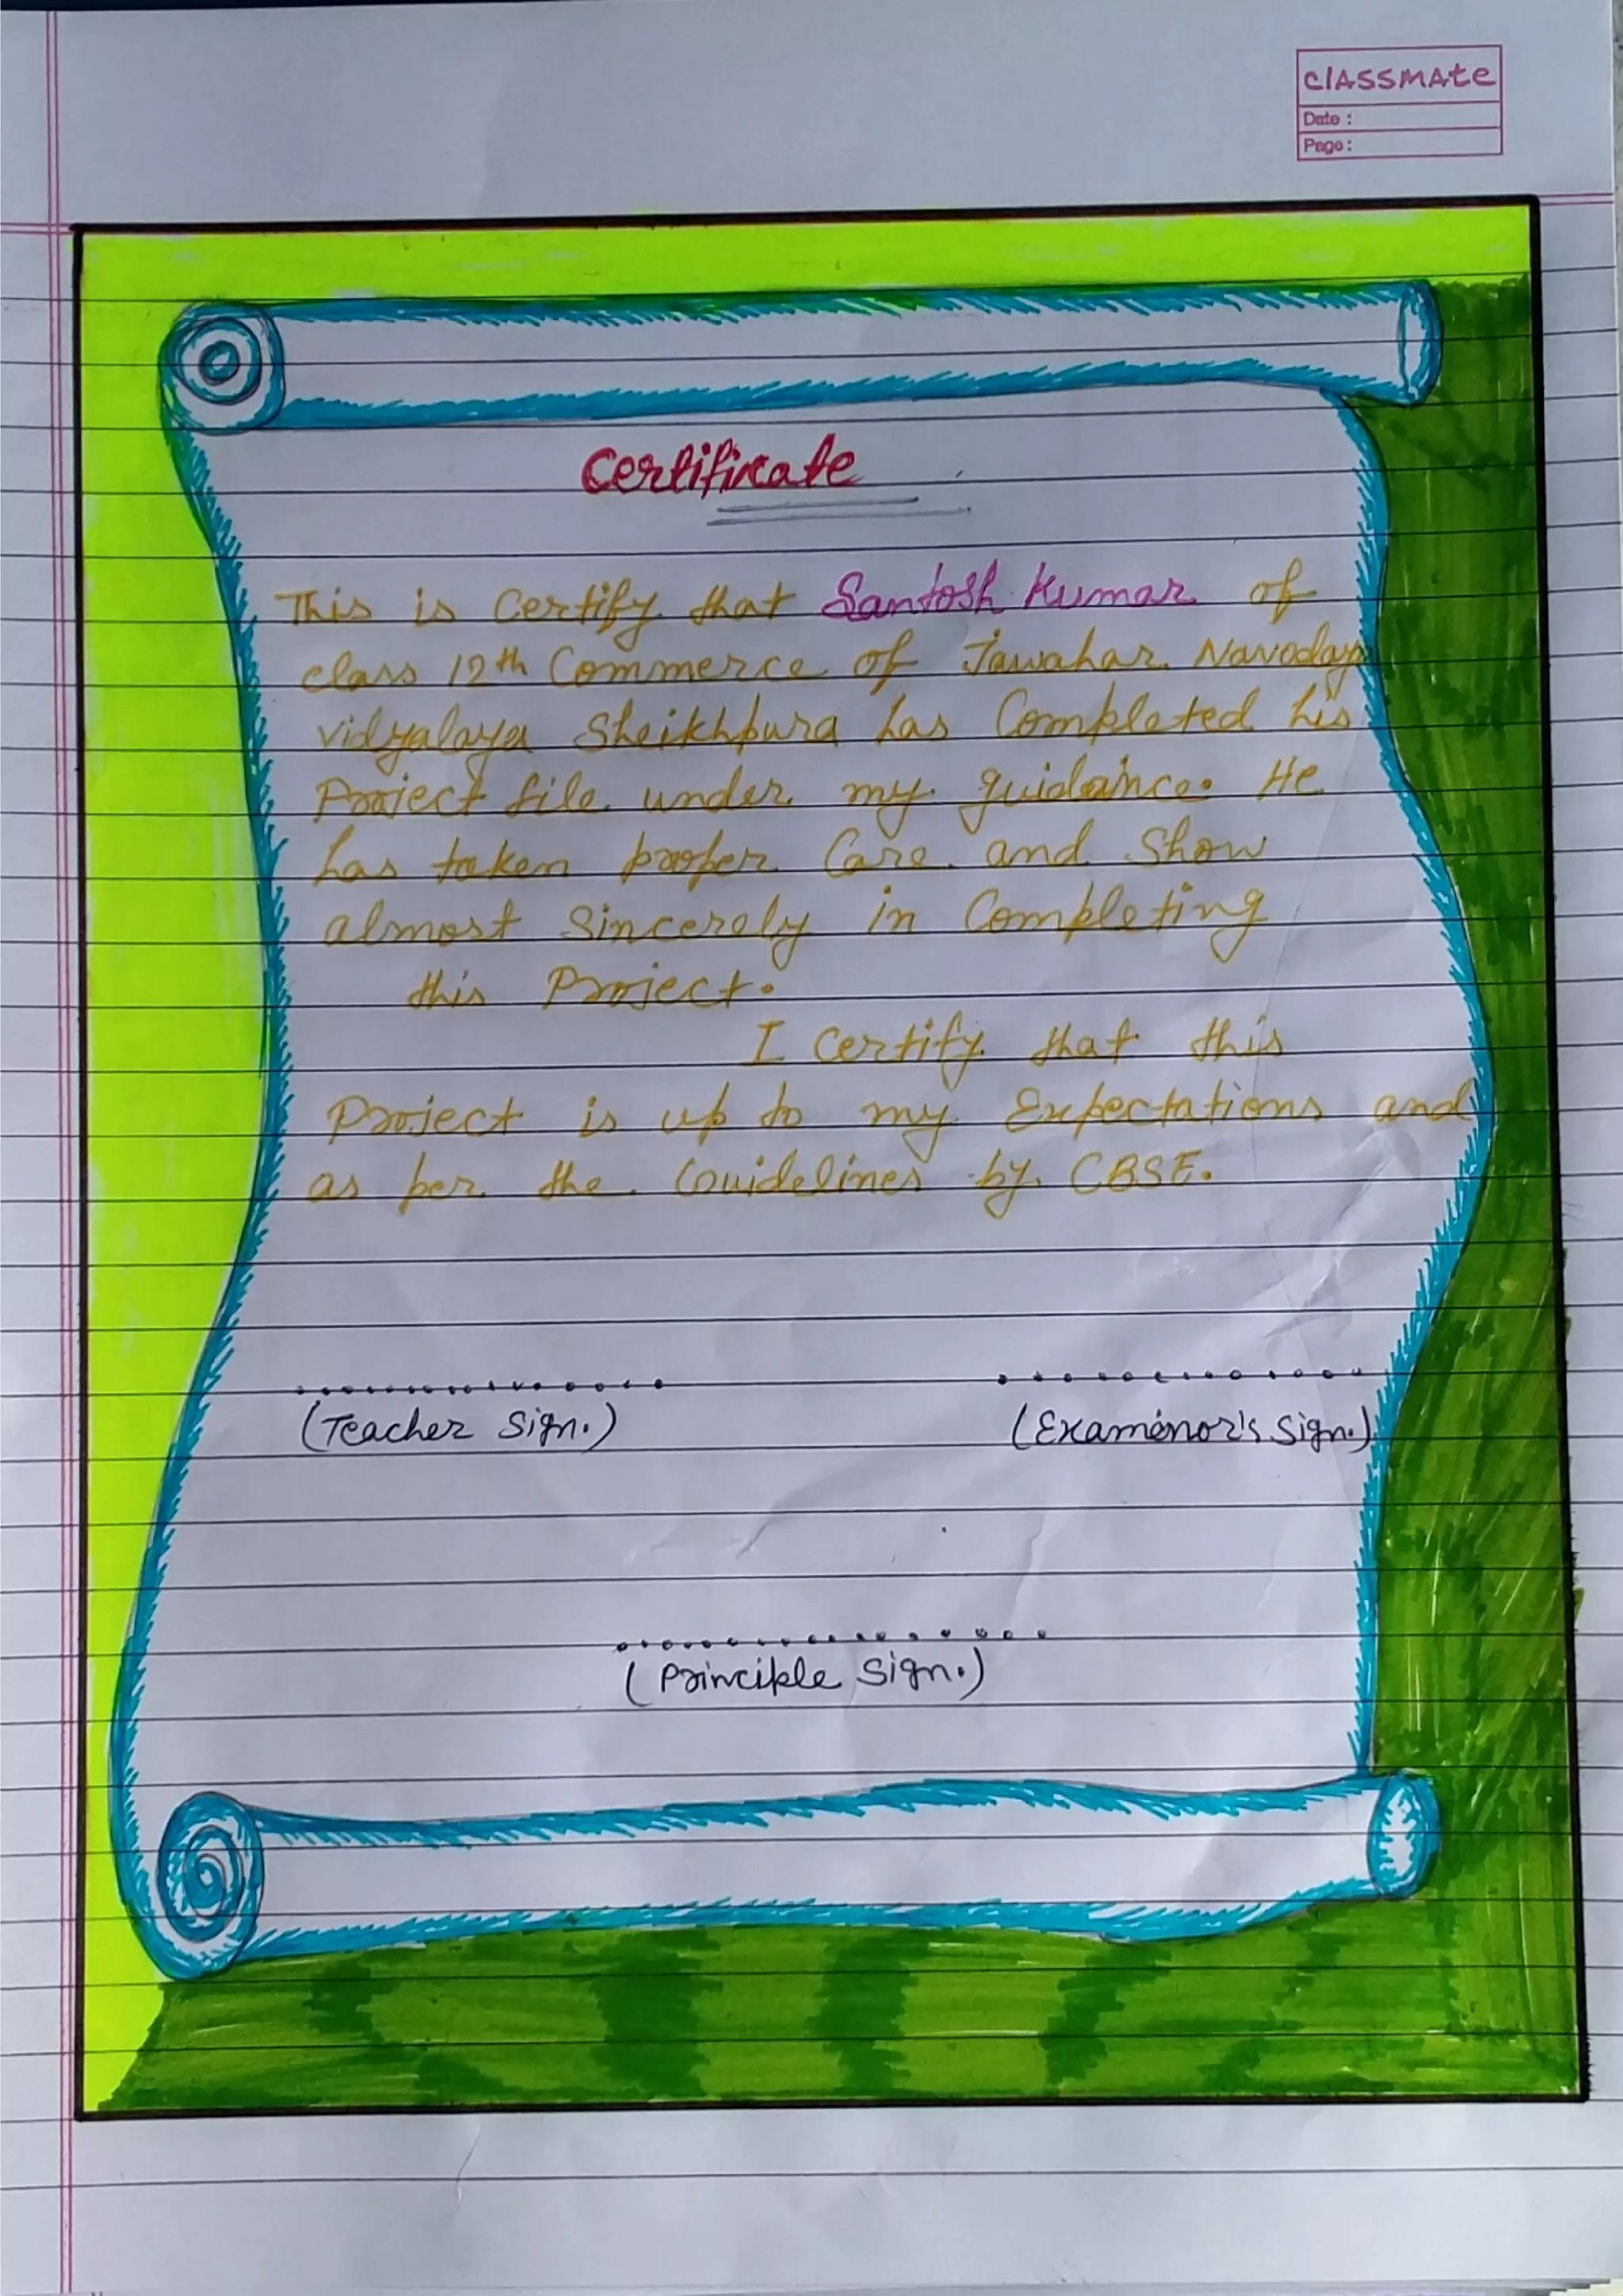 CLASSMATE
Date :
Page :
Certificate
This is Certify that Santosh Kumar of
class 12th Commerce of Jawahar Navodaya
vidyalaya Sheikhpura has Completed his
Project file under my guidance. He
has taken proper Care and Show
almost Sincerely in Completing
this Project.
I Certify that this
Project is up to my Expectations and
as per the Guidelines by CBSE.
(Teacher Sign.)
(Examinor's Sign.)
(Principle Sign.)